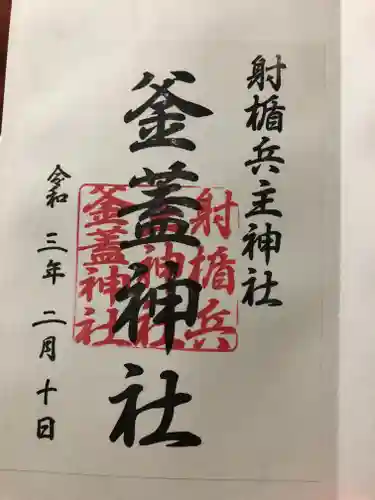 射楯兵主神社
釜蓋神社
令和三年二月十日
射楯兵
主神社
釜蓋神社